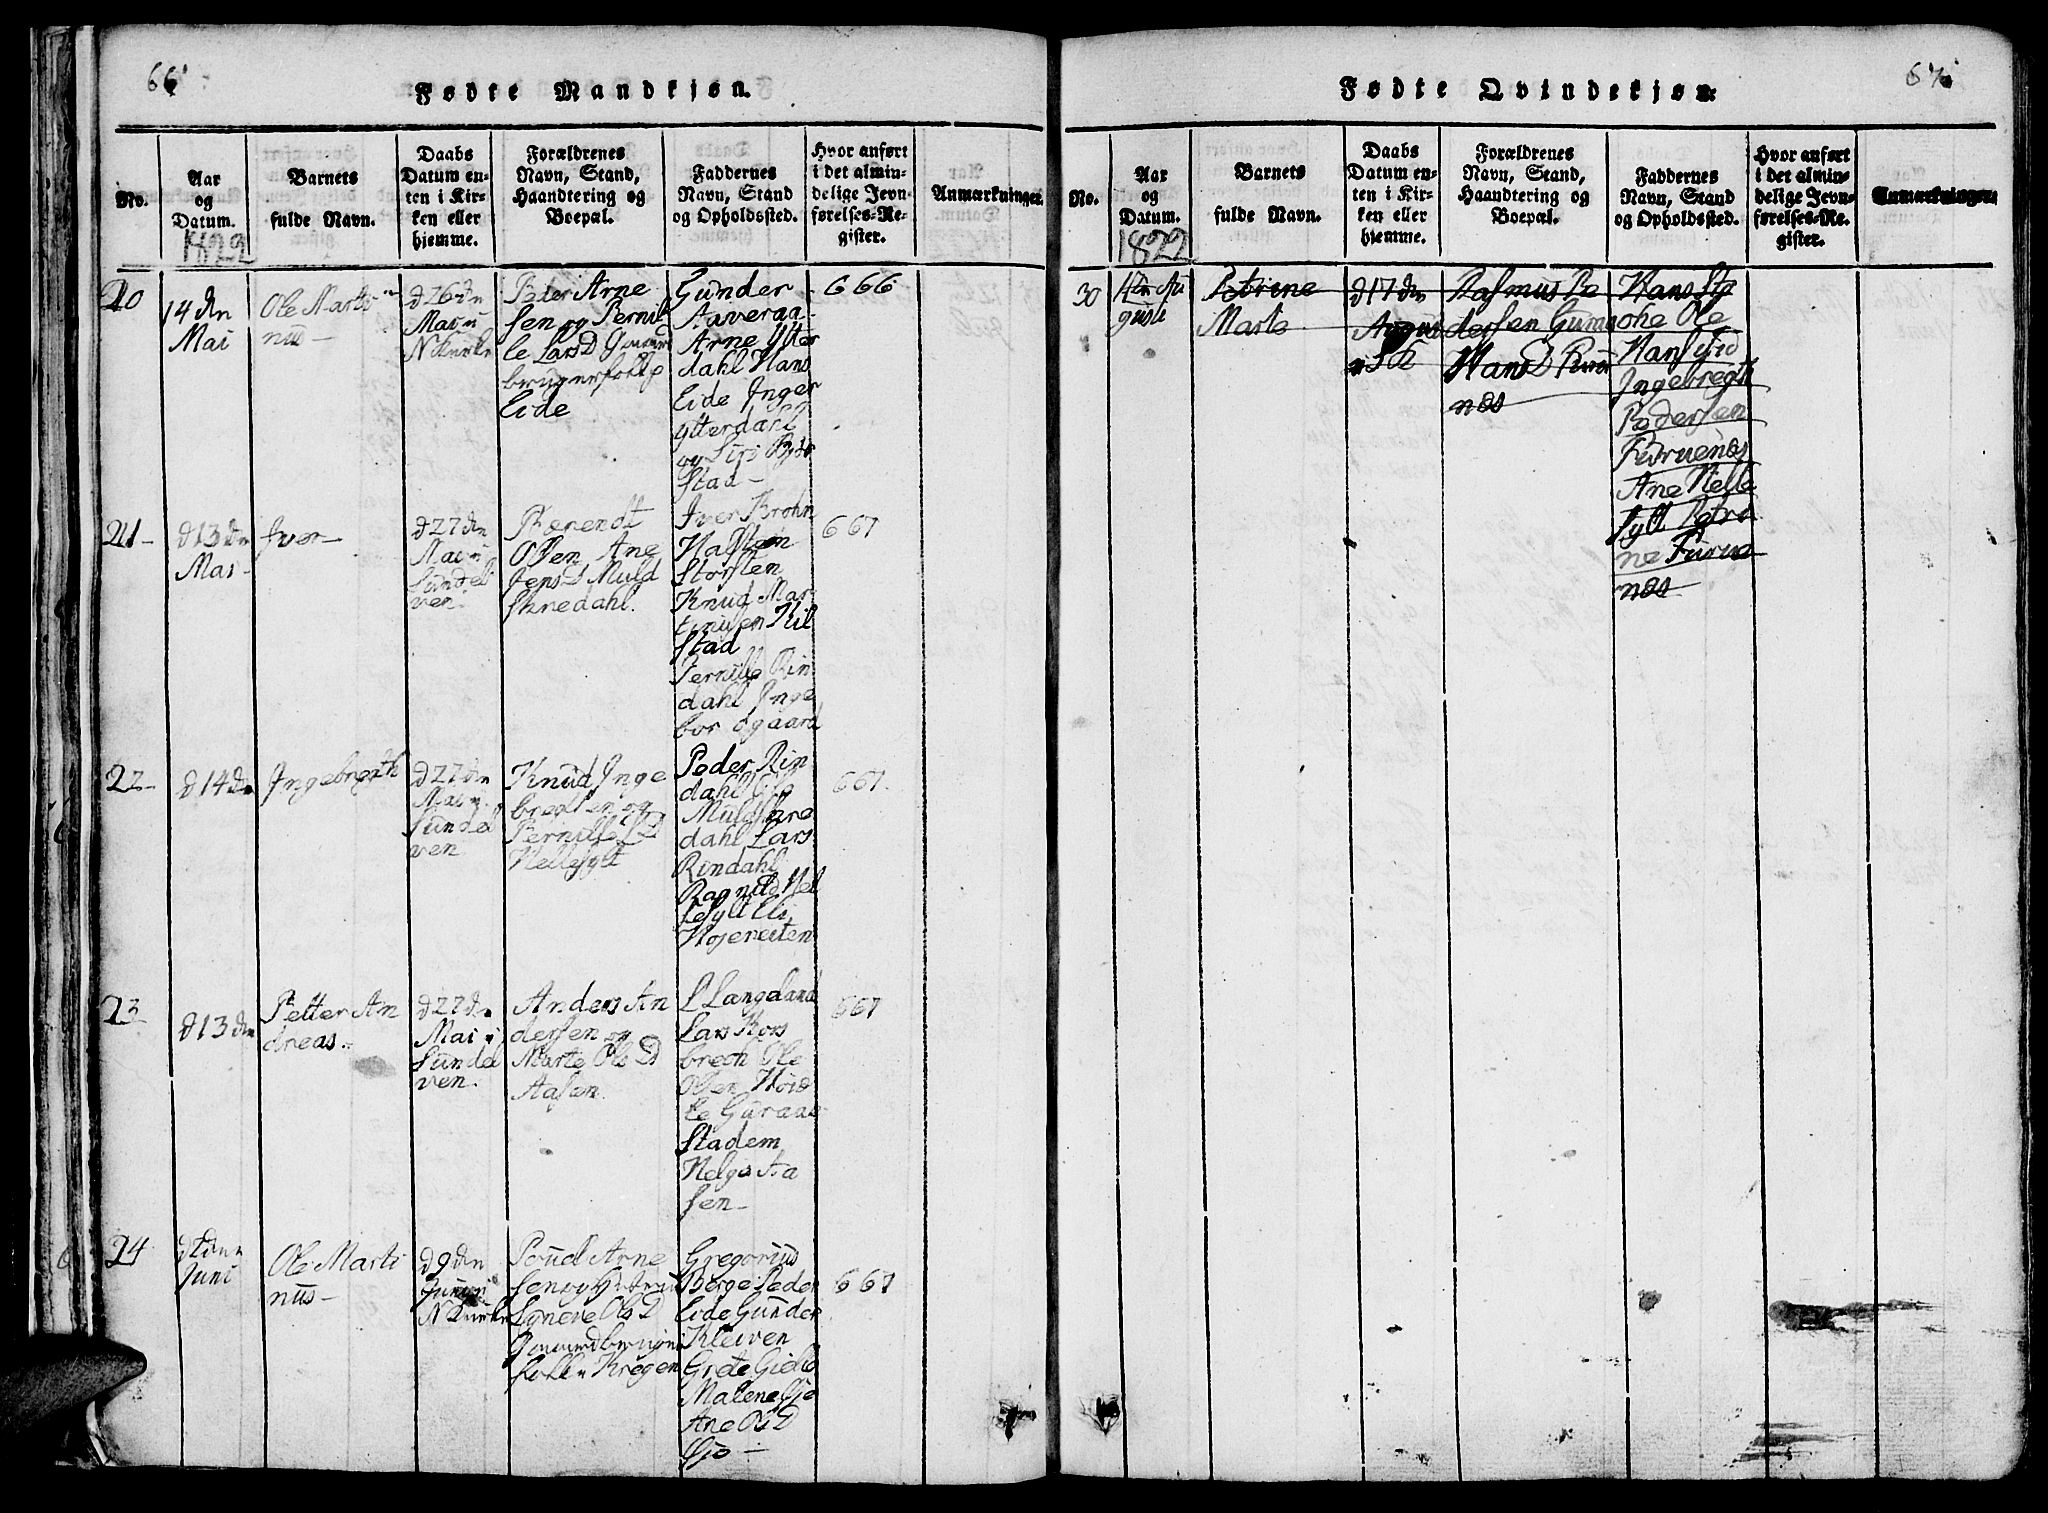 66
Fødte Mandkjøn.
No.
Aar
og
Datum.
1822
Barnets
fulde Navn.
Daabs
Datum en-
ten i Kir-
ken eller
hjemme.
Forældrenes
Navn, Stand,
Haandtering og
Boepæl.
Faddernes
Navn, Stand
og Opholdssted.
Hvor anført
i det almin-
delige Jevn-
førelses-Re-
gister.
Anmærkninger.
20
14 dn
Mai
Ole Marti
nus
d 26 dn
Mai i
N Kirke
Peder Arne
sen og Pernil
le Lars D
brugerfolk
Eide
Gunder
Aaveraa
Arne Ytter
dahl Hans
Eide Inger
Ytterdahl
og Siri
Stad
666
21
d 13 dn
Mai
Iver
d 27 dn
Mai i
Sundel
ven.
Berendt
Olsen Ane
Jens D Muld
skredahl.
Iver Brohn
Halsten
Storsten
Knud Mar
tinusen Kil
stad
Pernille Rin
dahl Inge
bor ogaard
667
22
d 14 dn
Ingebregth
d 27 dn
Mai i
Sundel
ven
Knud Inge
bregtsen og
Pernille L D
Hellesylt
Peder Rin
dahl Ole
Muldskre
dahl Lars
Rindahl
Ragnild Hel
lesylt Eli
Højereiten
667.
23
d 13 dn
Petter An
dreas
d 27 dn
Mai i
Sundel
ven.
Anders An
dersen og
Marte Ols D
Aasen.
L Langeland
Lars Kors
brech Ole
Olsen
Guraae
Stadem
Helge Aa
sen
667
24
Juni
Ole Marti
nus
d 9 dn
Juni i
N Kirke
Poud Arne
sen og
Synneve Ols D
Gaardbruger
folk Krogen
Gregorius
Børge Peder
Eide Gunder
Kleiven
Grete Gielle
Malene Øje
Ane Ols D
Øje
667
67
Fødte Qvindekjøn:
No.
Aar
og
Datum.
1822
Barnets
fulde Navn.
Daabs
Datum en-
ten i Kir-
ken eller
hjemme.
Forældrenes
Navn, Stand,
Haandtering og
Boepæl.
Faddernes
Navn, Stand
og Opholdssted.
Hvor anført
i det almin-
delige Jevn-
førelses-Re-
gister.
Anmærkninger.
30
Au
gust
Petrine
Marte
d 17 dn
August
i S K
Rasmus Pe
dersen Guma
Hans D Furu
næs
Hans Stg
ohe Ole
Hans
Ingebregth
Pedersen
Furuenæs
Ane Helle
sylt Petri
ne Furue
næs